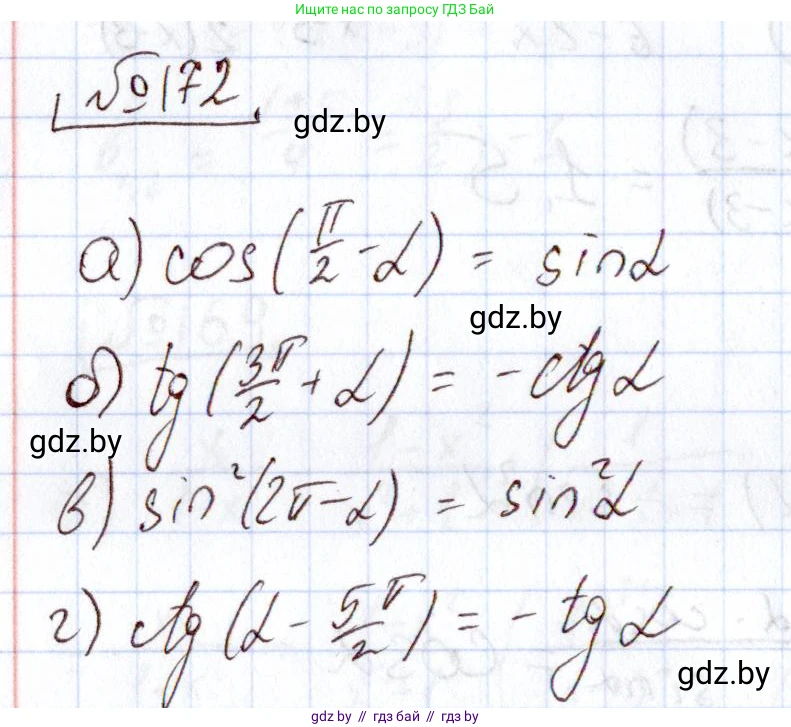 Ищите нас по запросу ГДЗ Бай
№172
gdz.by
а) cos(π/2 - α) = sinα
gdz.by
б) tg(3π/2 + α) = - ctgα
gdz.by
в) sin²(2π - α) = sin²α
г) ctg(α - 5π/2) = - tgα
gdz.by
gdz.by // гдз бай // гдз.by